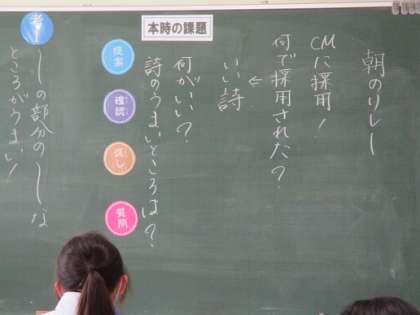 朝のリレー
CMに採用!
何で採用された?
↓
いい詩
本時の課題
何がいい?
詩のうまいところは?
提案
確認
促し
質問
考
〜の部分の〜な
ところがうまい!